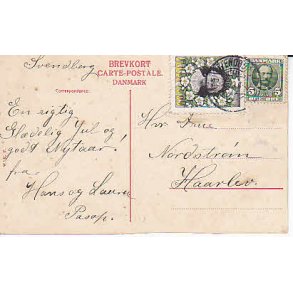 Svendborg
BREVKORT
CARTE-POSTALE
DANMARK
En rigtig
Glædelig Jul og
godt Nytaar
fra
Hans og Laura
DANMARK
5
Nordstrøm
Haarlev.